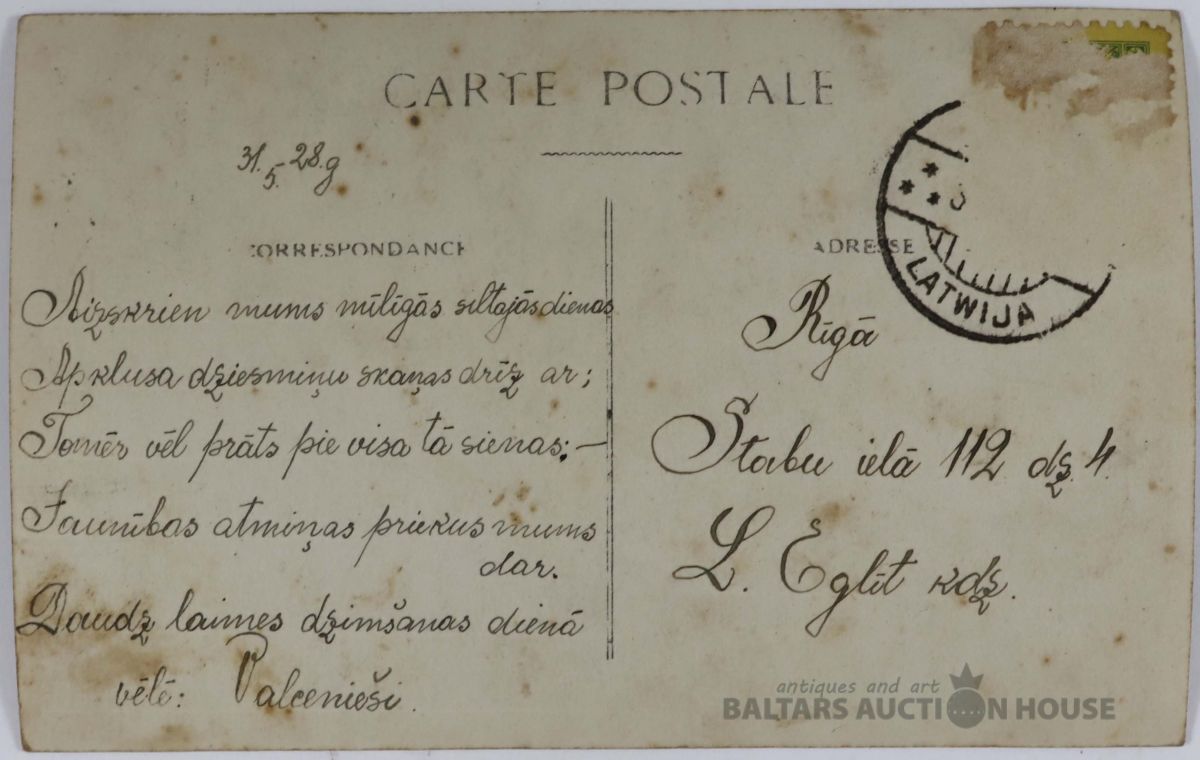 CARTE POSTALE
31. 5. 28. g
CORRESPONDANCE
Aizskrien mums mīlīgās siltajās dienas
Apklusa dziesmiņu skaņas drīz ar;
Tomēr vēl prāts pie visa tā sienas; —
Jaunības atmiņas priekus mums
dar.
Daudz laimes dzimšanas dienā
vēlē: Palcenieši.
ADRESSE
LATWIJA
Rīgā
Stabu ielā 112 dz. 4.
L. Eglīt kdz.
antiques and art
BALTARS AUCTION HOUSE